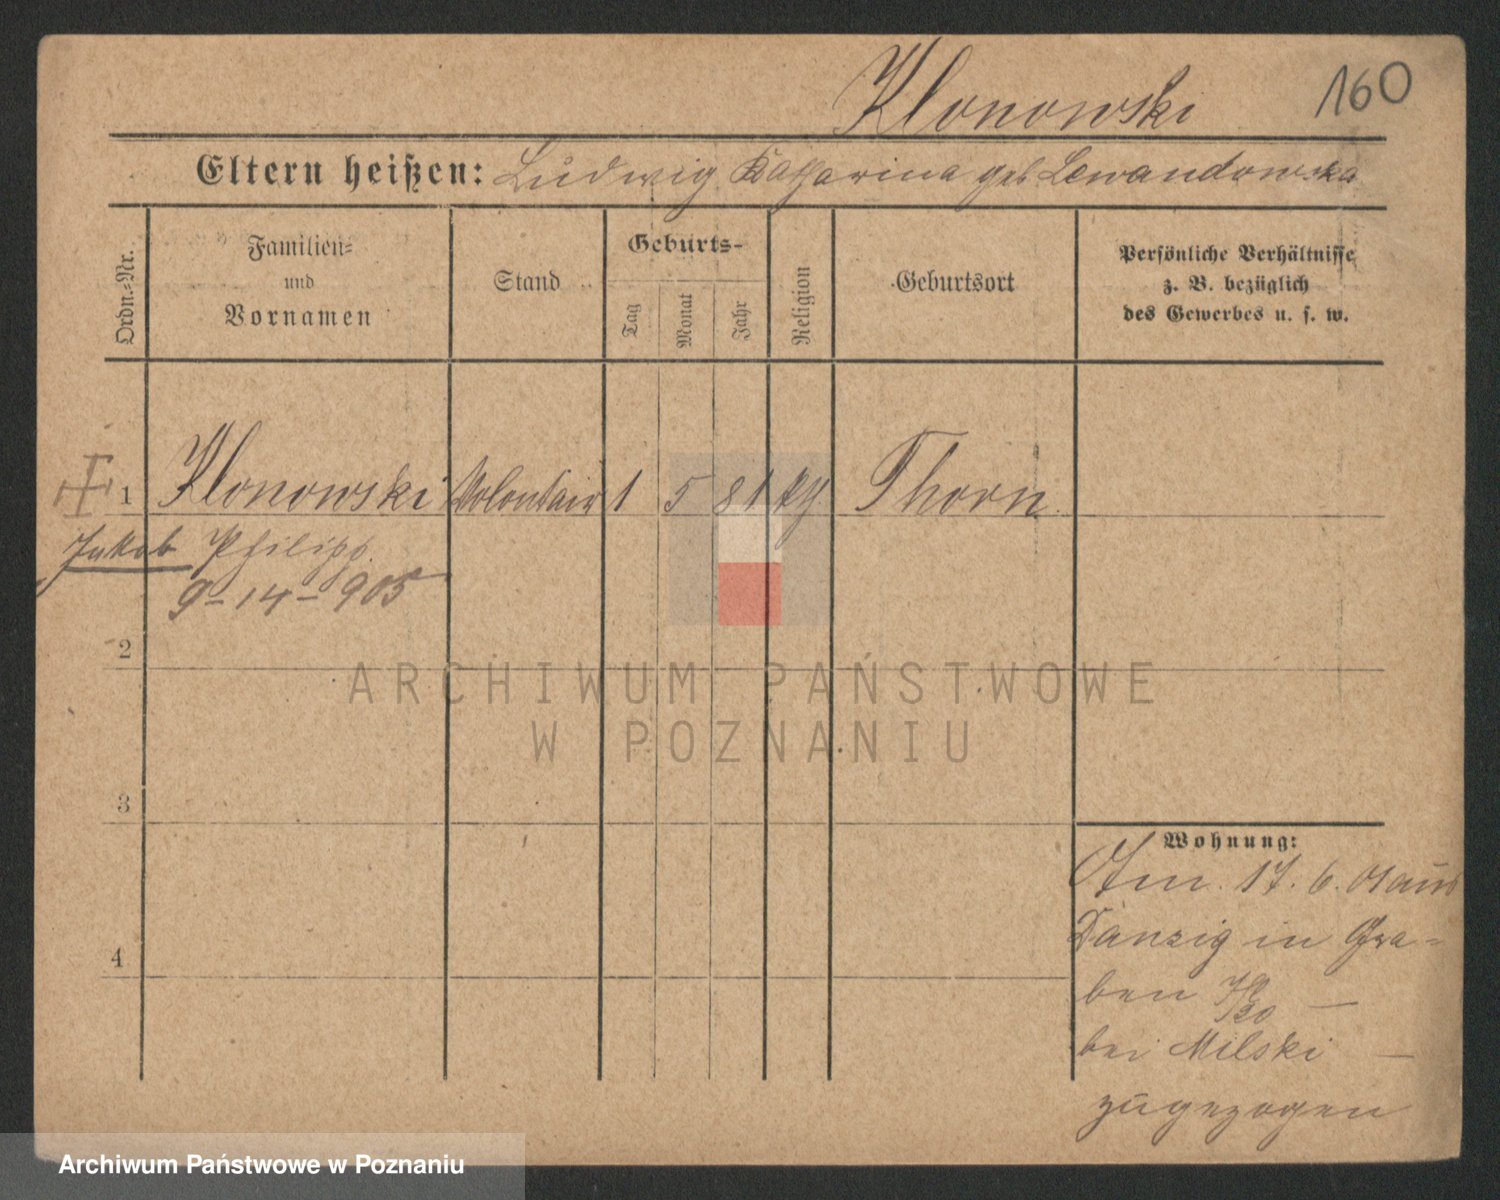 Klonowski
160
Eltern heißen: Ludwig Katharina geb Lewandowska
Ordn.-Nr.
Familien-
und
Vornamen
Stand
Geburts-
Tag
Monat
Jahr
Religion
Geburtsort
Persönliche Verhältnisse
z. B. bezüglich
des Gewerbes u. s. w.
1 Klonowski Volontair 1 5 81 Thorn
Jakob Philipp
9-14-905
2
ARCHIWUM PAŃSTWOWE
W POZNANIU
3
Wohnung:
Am 17. 6. 01 aus
Danzig in Gra-
4
ben
bei Milski —
zugezogen
Archiwum Państwowe w Poznaniu